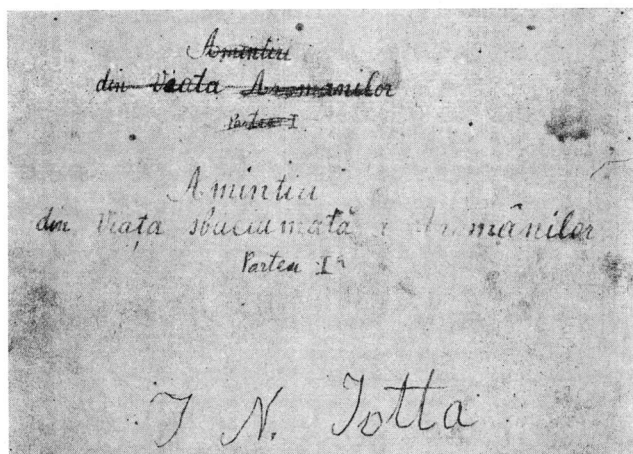 Amintiri
din Viata Aromanilor
Partea I
Amintiri
din Viața sbuciumată a Aromânilor
Partea Iª
I N. Iotta